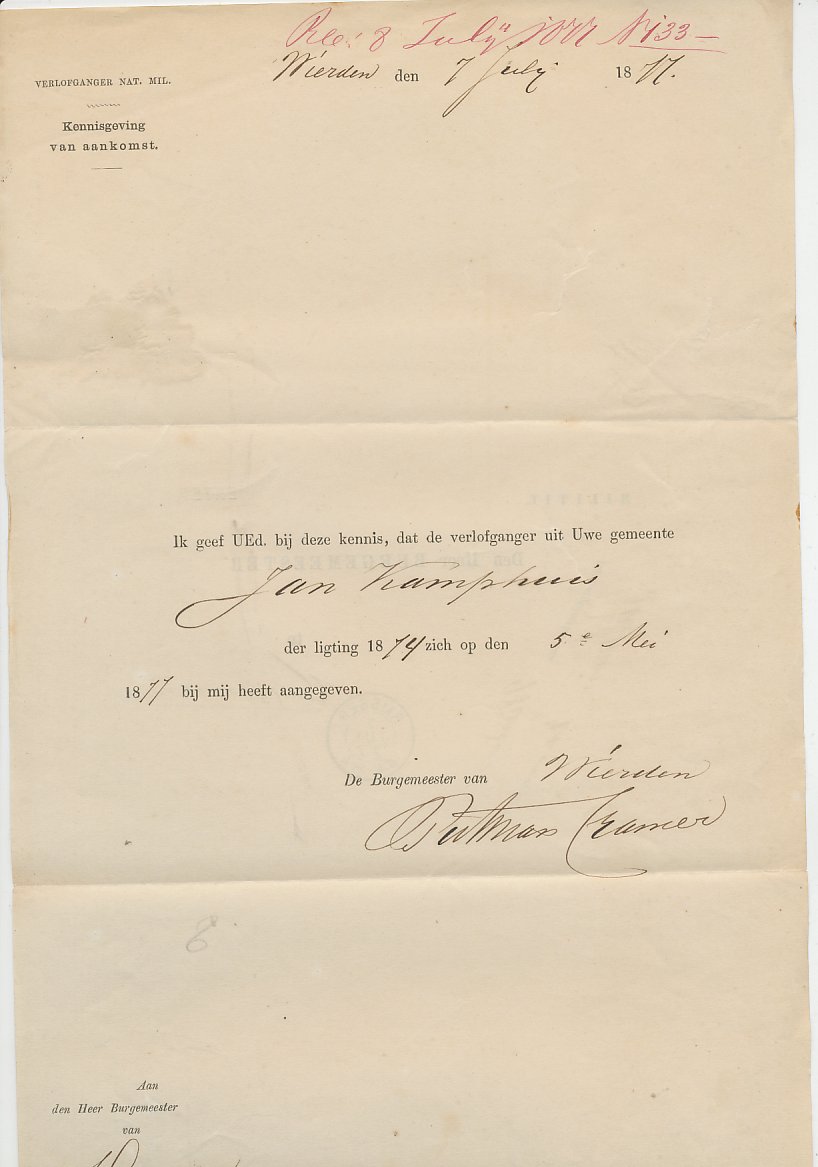 Rec: 8 Julij 1877 No 133
Wierden den 7 Julij 1877.
VERLOFGANGER NAT. MIL.
Kennisgeving
van aankomst.
Ik geef UEd. bij deze kennis, dat de verlofganger uit Uwe gemeente
Jan Kamphuis
der ligting 1874 zich op den 5e Mei
1877 bij mij heeft aangegeven.
De Burgemeester van Wierden
Putman Cramer
8
Aan
den Heer Burgemeester
van